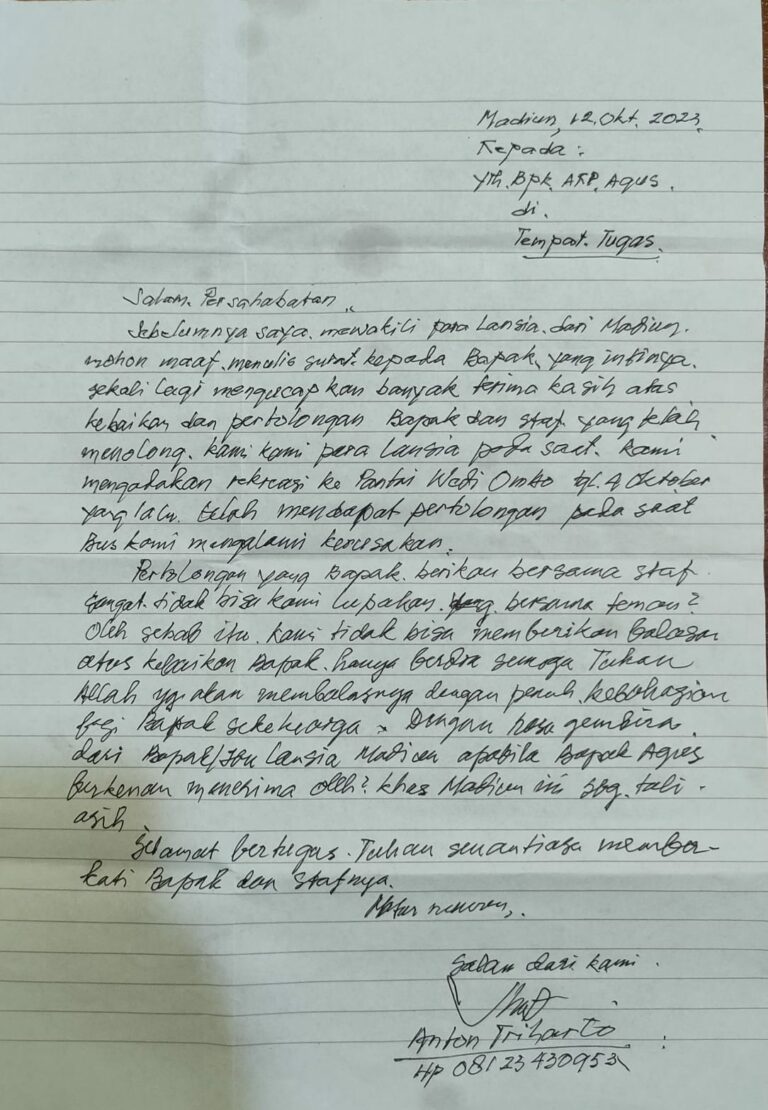 Madiun, 12. Okt. 2023
Kepada :
Yth. Bpk. AKP. Agus.
di.
Tempat. Tugas.
Salam. Persahabatan,,
Sebelumnya saya. mewakili para Lansia. dari Madiun.
mohon maaf. menulis surat. kepada Bapak, yang intinya.
sekali lagi mengucapkan banyak terima kasih atas
kebaikan dan pertolongan Bapak dan staf. yang telah
menolong. kami kami para Lansia pada saat. kami
mengadakan rekreasi ke Pantai Wedi Ombo tgl. 4 Oktober
yang lalu. telah mendapat pertolongan pada saat
Bus kami mengalami kerusakan.
Pertolongan yang Bapak. berikan bersama staf.
sangat. tidak bisa kami lupakan. bersama teman²
Oleh sebab itu. kami tidak bisa memberikan balasan
atas kebaikan Bapak. hanya berdoa semoga Tuhan
Allah yg akan membalasnya dengan penuh. kebahagian
bagi Bapak sekeluarga. Dengan rasa gembira.
dari Bapak/Ibu Lansia Madiun apabila Bapak Agus
berkenan menerima oleh² khas Madiun ini sbg. tali.
asih
Selamat bertugas. Tuhan senantiasa member-
kati Bapak dan stafnya.
Matur nuwun,.
Salam dari kami.
Anton Triharto
HP 08123430953